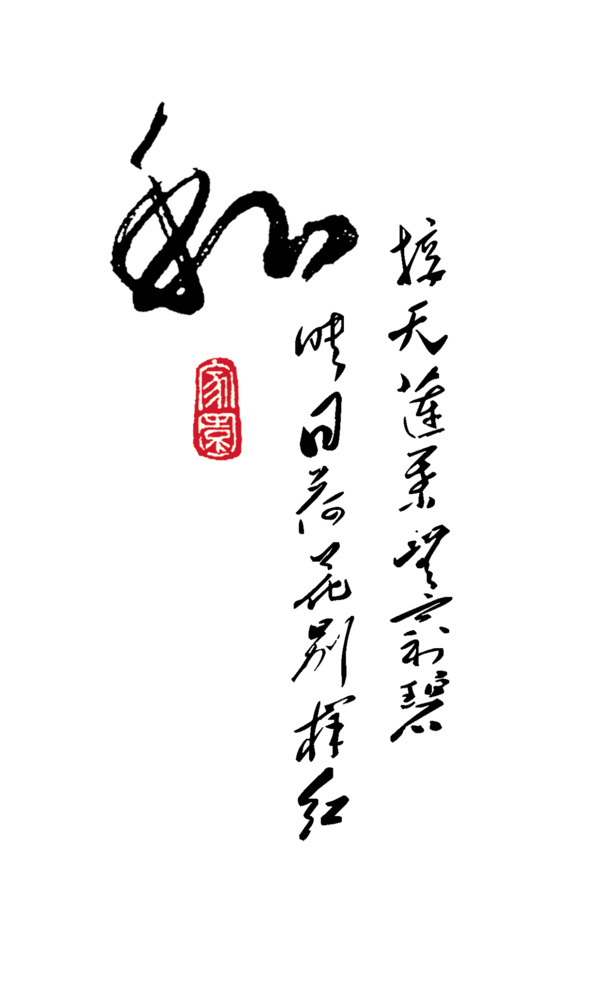 接天蓮葉無窮碧
映日荷花别樣红
和
家園